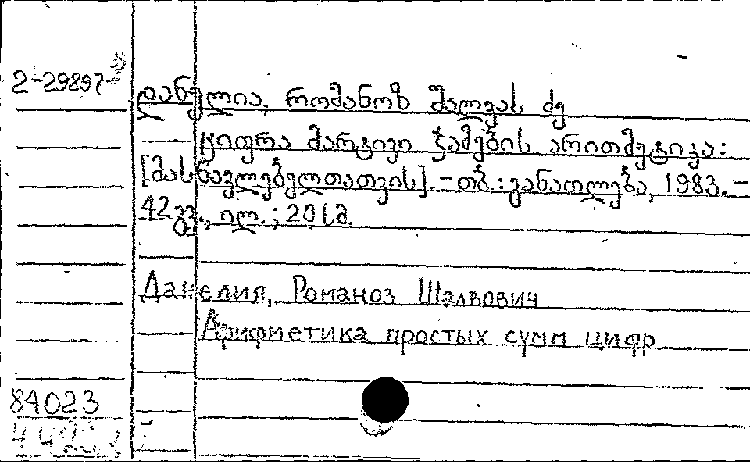 2-29897-
დანელია, რომანოზ შალვას ძე
ციფრთა მარტივი ჯამების არითმეტიკა:
[მასწავლებელთათვის].–თბ.:განათლება, 1983.–
42გვ., ილ.; 20სმ.
Данелия, Романоз Шалвович
Арифметика простых сумм цифр
84023